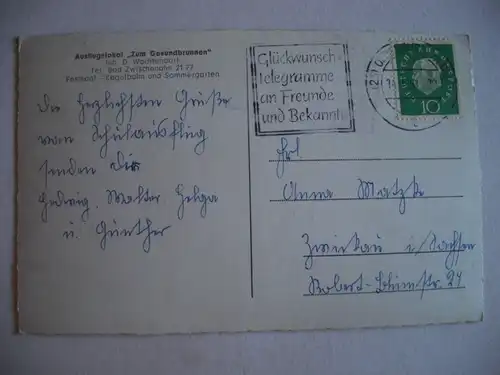 Ausflugslokal „Zum Gesundbrunnen"
Inh. D. Wachtendorf
Tel. Bad Zwischenahn 21 77
Festsaal - Kegelbahn und Sommergarten
Die herzlichsten Grüße
vom Schulausflug
senden Dir
Hedwig, Walter, Helga
u. Günther
Glückwunsch-
telegramme
an Freunde
und Bekannte
DEUTSCHE BUNDESPOST
10
Frl.
Anna Matzke
Zwickau i/Sachsen
Robert-Blum-str. 24